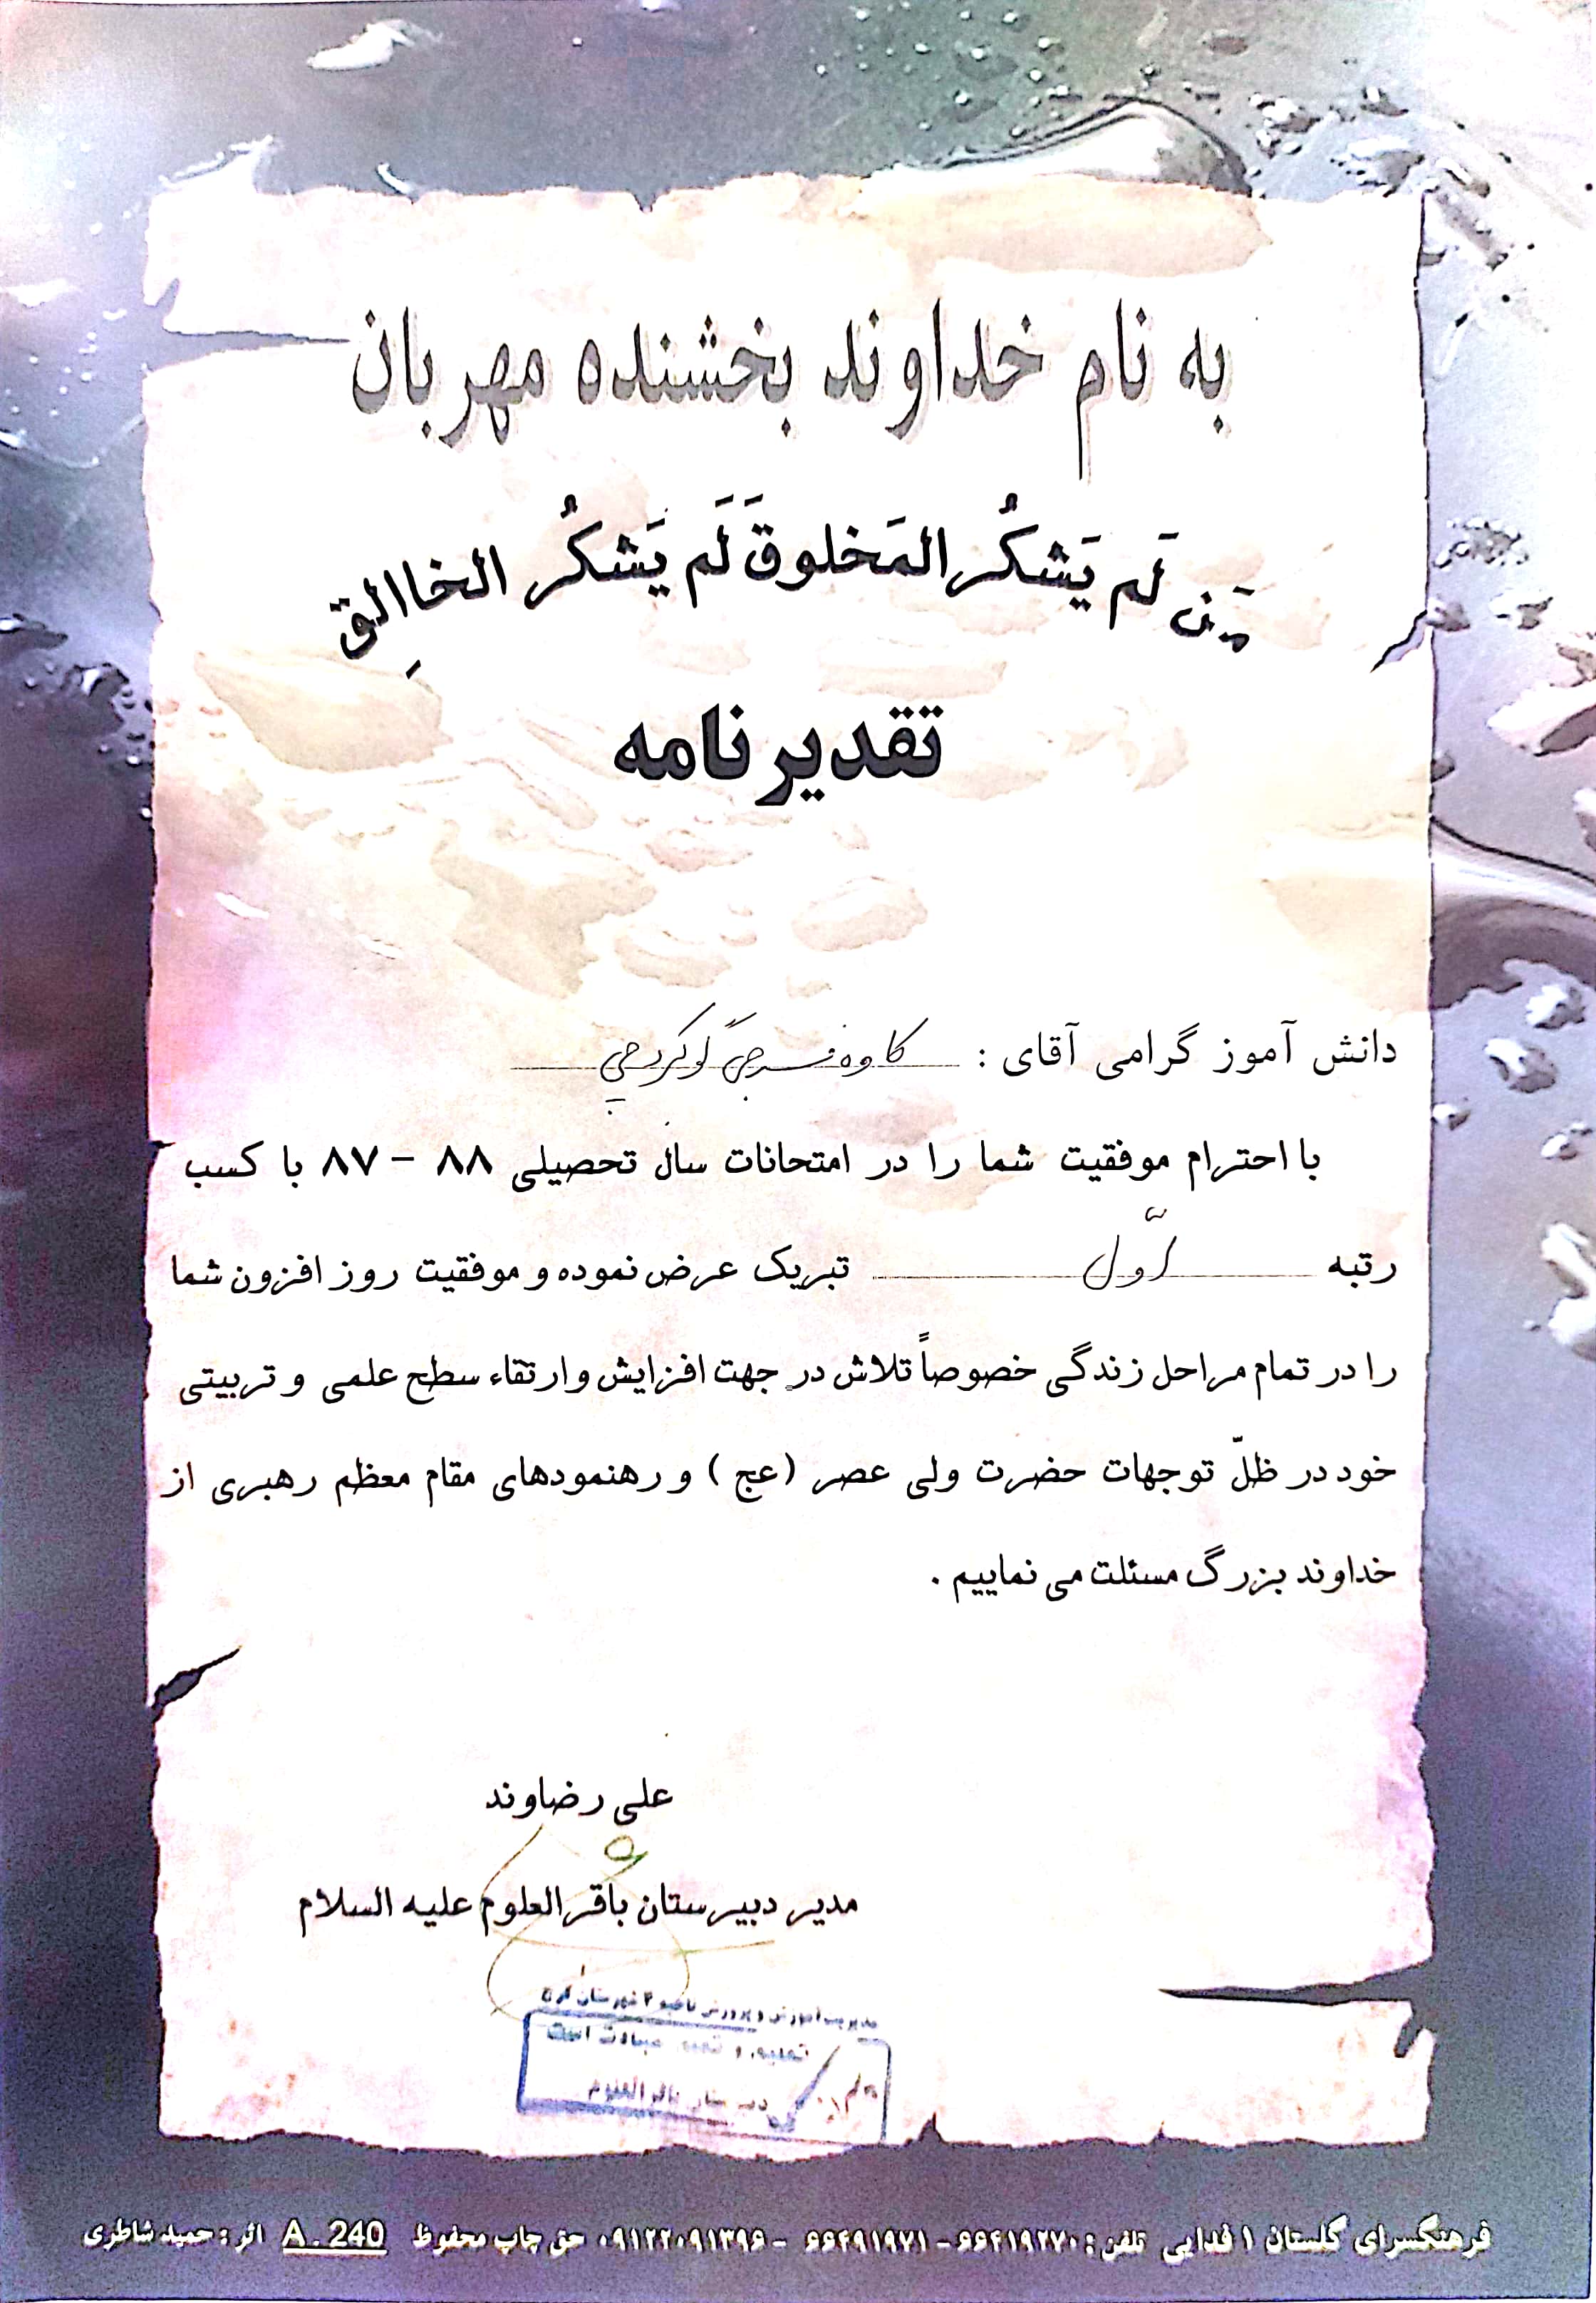 به نام خداوند بخشنده مهربان
مَن لَم يَشكُر المَخلوقَ لَم يَشكُر الخاالِق
تقدیر نامه
دانش آموز گرامی آقای : کاوه فرجی گوکرجی
با احترام موفقیت شما را در امتحانات سال تحصیلی ۸۸ – ۸۷ با کسب
رتبه اوّل تبریک عرض نموده و موفقیت روز افزون شما
را در تمام مراحل زندگی خصوصاً تلاش در جهت افزایش و ارتقاء سطح علمی و تربیتی
خود در ظلّ توجهات حضرت ولی عصر (عج) و رهنمودهای مقام معظم رهبری از
خداوند بزرگ مسئلت می نماییم .
علی رضاوند
مدیر دبیرستان باقرالعلوم علیه السلام
مدیریت آموزش و پرورش ناحیه ۲ شهرستان کرج
تعلیم و عبادت است
دبیرستان باقرالعلوم
فرهنگسرای گلستان ۱ فدایی تلفن : ۶۶۴۱۹۲۷۰ - ۶۶۴۹۱۹۷۱ - ۰۹۱۲۲۰۹۱۳۹۶ حق چاپ محفوظ A . 240 اثر : حمید شاطری